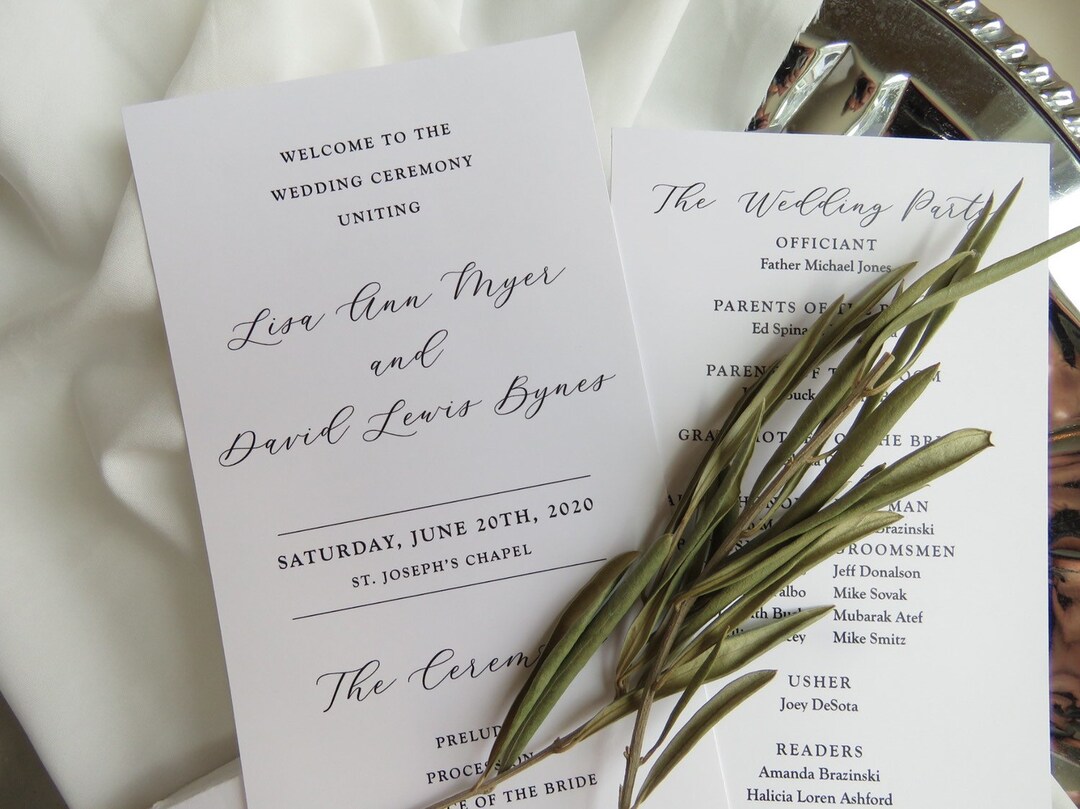 WELCOME TO THE
WEDDING CEREMONY
UNITING
Lisa Ann Myer
and
David Lewis Bynes
SATURDAY, JUNE 20TH, 2020
ST. JOSEPH'S CHAPEL
The
PRELUDE
OF THE BRIDE
The Wedding Party
OFFICIANT
Father Michael Jones
PARENTS OF THE
Ed Spina
PARENTS OF THE GROOM
OF THE BRIDE
Brazinski
GROOMSMEN
Jeff Donalson
Mike Sovak
Mubarak Atef
Mike Smitz
USHER
Joey DeSota
READERS
Amanda Brazinski
Halicia Loren Ashford